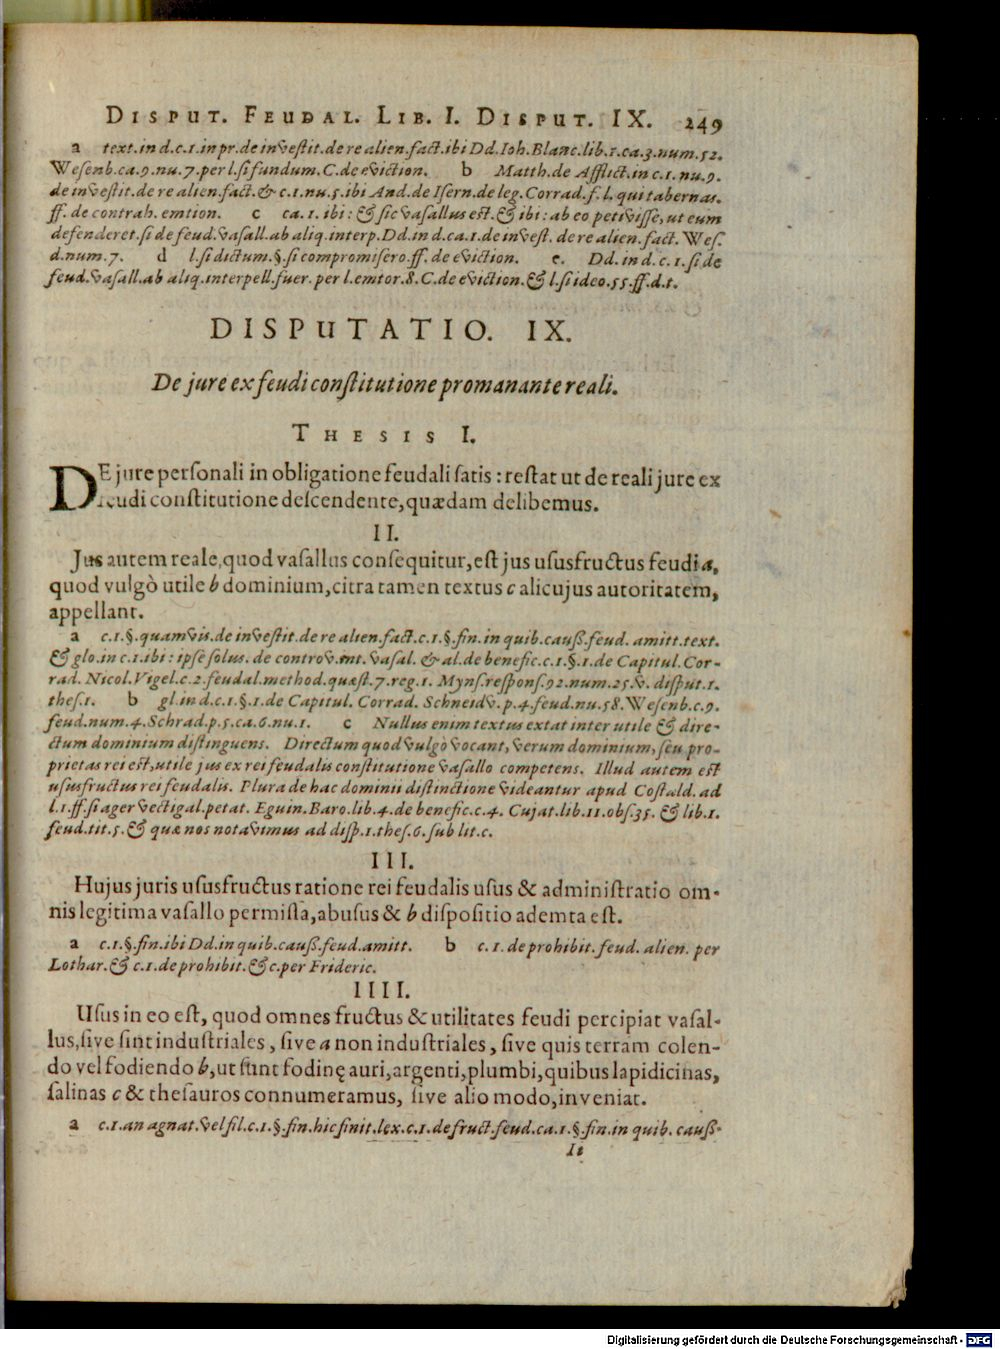 DISPUT. FEUDAL. LIB. I. DISPUT. IX. 249
a text. in d. c. 1. in pr. de investit. de re alien. fact. ibi Dd. Ioh. Blanc. lib. 1. ca. 3. num. 52.
Wesenb. ca. 9. nu. 7. per l. si fundum. C. de eviction. b Matth. de Afflict. in c. 1. nu. 9.
de investit. de re alien. fact. & c. 1. nu. 5. ibi And. de Isern. de leg. Corrad. f. l. qui tabernas.
ff. de contrah. emtion. c ca. 1. ibi: & sic vasallus est. & ibi: ab eo petivisse, ut eum
defenderet. si de feud. vasall. ab aliq. interp. Dd. in d. ca. 1. de invest. de re alien. fact. Wes.
d. num. 7. d l. si dictum. §. si compromisero. ff. de eviction. e. Dd. in d. c. 1. si de
feud. vasall. ab aliq. interpell. fuer. per l. emtor. 8. C. de eviction. & l. si ideo. 55. ff. d. t.
DISPUTATIO. IX.
De jure ex feudi constitutione promanante reali.
THESIS I.
DE jure personali in obligatione feudali satis: restat ut de reali jure ex
feudi constitutione descendente, quædam delibemus.
II.
Jus autem reale, quod vasallus consequitur, est jus ususfructus feudi a,
quod vulgò utile b dominium, citra tamen textus c alicujus autoritatem,
appellant.
a c. 1. §. quamvis. de investit. de re alien. fact. c. 1. §. fin. in quib. causs. feud. amitt. text.
& glo. in c. 1. ibi: ipse solus. de controv. int. vasal. & al. de benefic. c. 1. §. 1. de Capitul. Cor-
rad. Nicol. Vigel. c. 2. feudal. method. quæst. 7. reg. 1. Myns. respons. 92. num. 25. v. disput. 1.
thes. 1. b gl. in d. c. 1. §. 1. de Capitul. Corrad. Schneidv. p. 4. feud. nu. 58. Wesenb. c. 9.
feud. num. 4. Schrad. p. 5. ca. 6. nu. 1. c Nullus enim textus extat inter utile & dire-
ctum dominium distinguens. Directum quod vulgò vocant, verum dominium, seu pro-
prietas rei est, utile jus ex rei feudalis constitutione vasallo competens. Illud autem est
ususfructus rei feudalis. Plura de hac dominii distinctione videantur apud Costald. ad
l. 1. ff. si ager vectigal. petat. Eguin. Baro. lib. 4. de benefic. c. 4. Cujat. lib. 11. obs. 35. & lib. 1.
feud. tit. 5. & quæ nos notavimus ad disp. 1. thes. 6. sub lit. c.
III.
Hujus juris ususfructus ratione rei feudalis usus & administratio om-
nis legitima vasallo permissa, abusus & b dispositio ademta est.
a c. 1. §. fin. ibi Dd. in quib. causs. feud. amitt. b c. 1. de prohibit. feud. alien. per
Lothar. & c. 1. de prohibit. & c. per Frideric.
IIII.
Usus in eo est, quod omnes fructus & utilitates feudi percipiat vasal-
lus, sive sint industriales, sive a non industriales, sive quis terram colen-
do vel fodiendo b, ut sunt fodinę auri, argenti, plumbi, quibus lapidicinas,
salinas c & thesauros connumeramus, sive alio modo, inveniat.
a c. 1. an agnat. vel fil. c. 1. §. fin. hic finit. lex. c. 1. de fruct. feud. ca. 1. §. fin. in quib. causs.
Ii
Digitalisierung gefördert durch die Deutsche Forschungsgemeinschaft - DFG